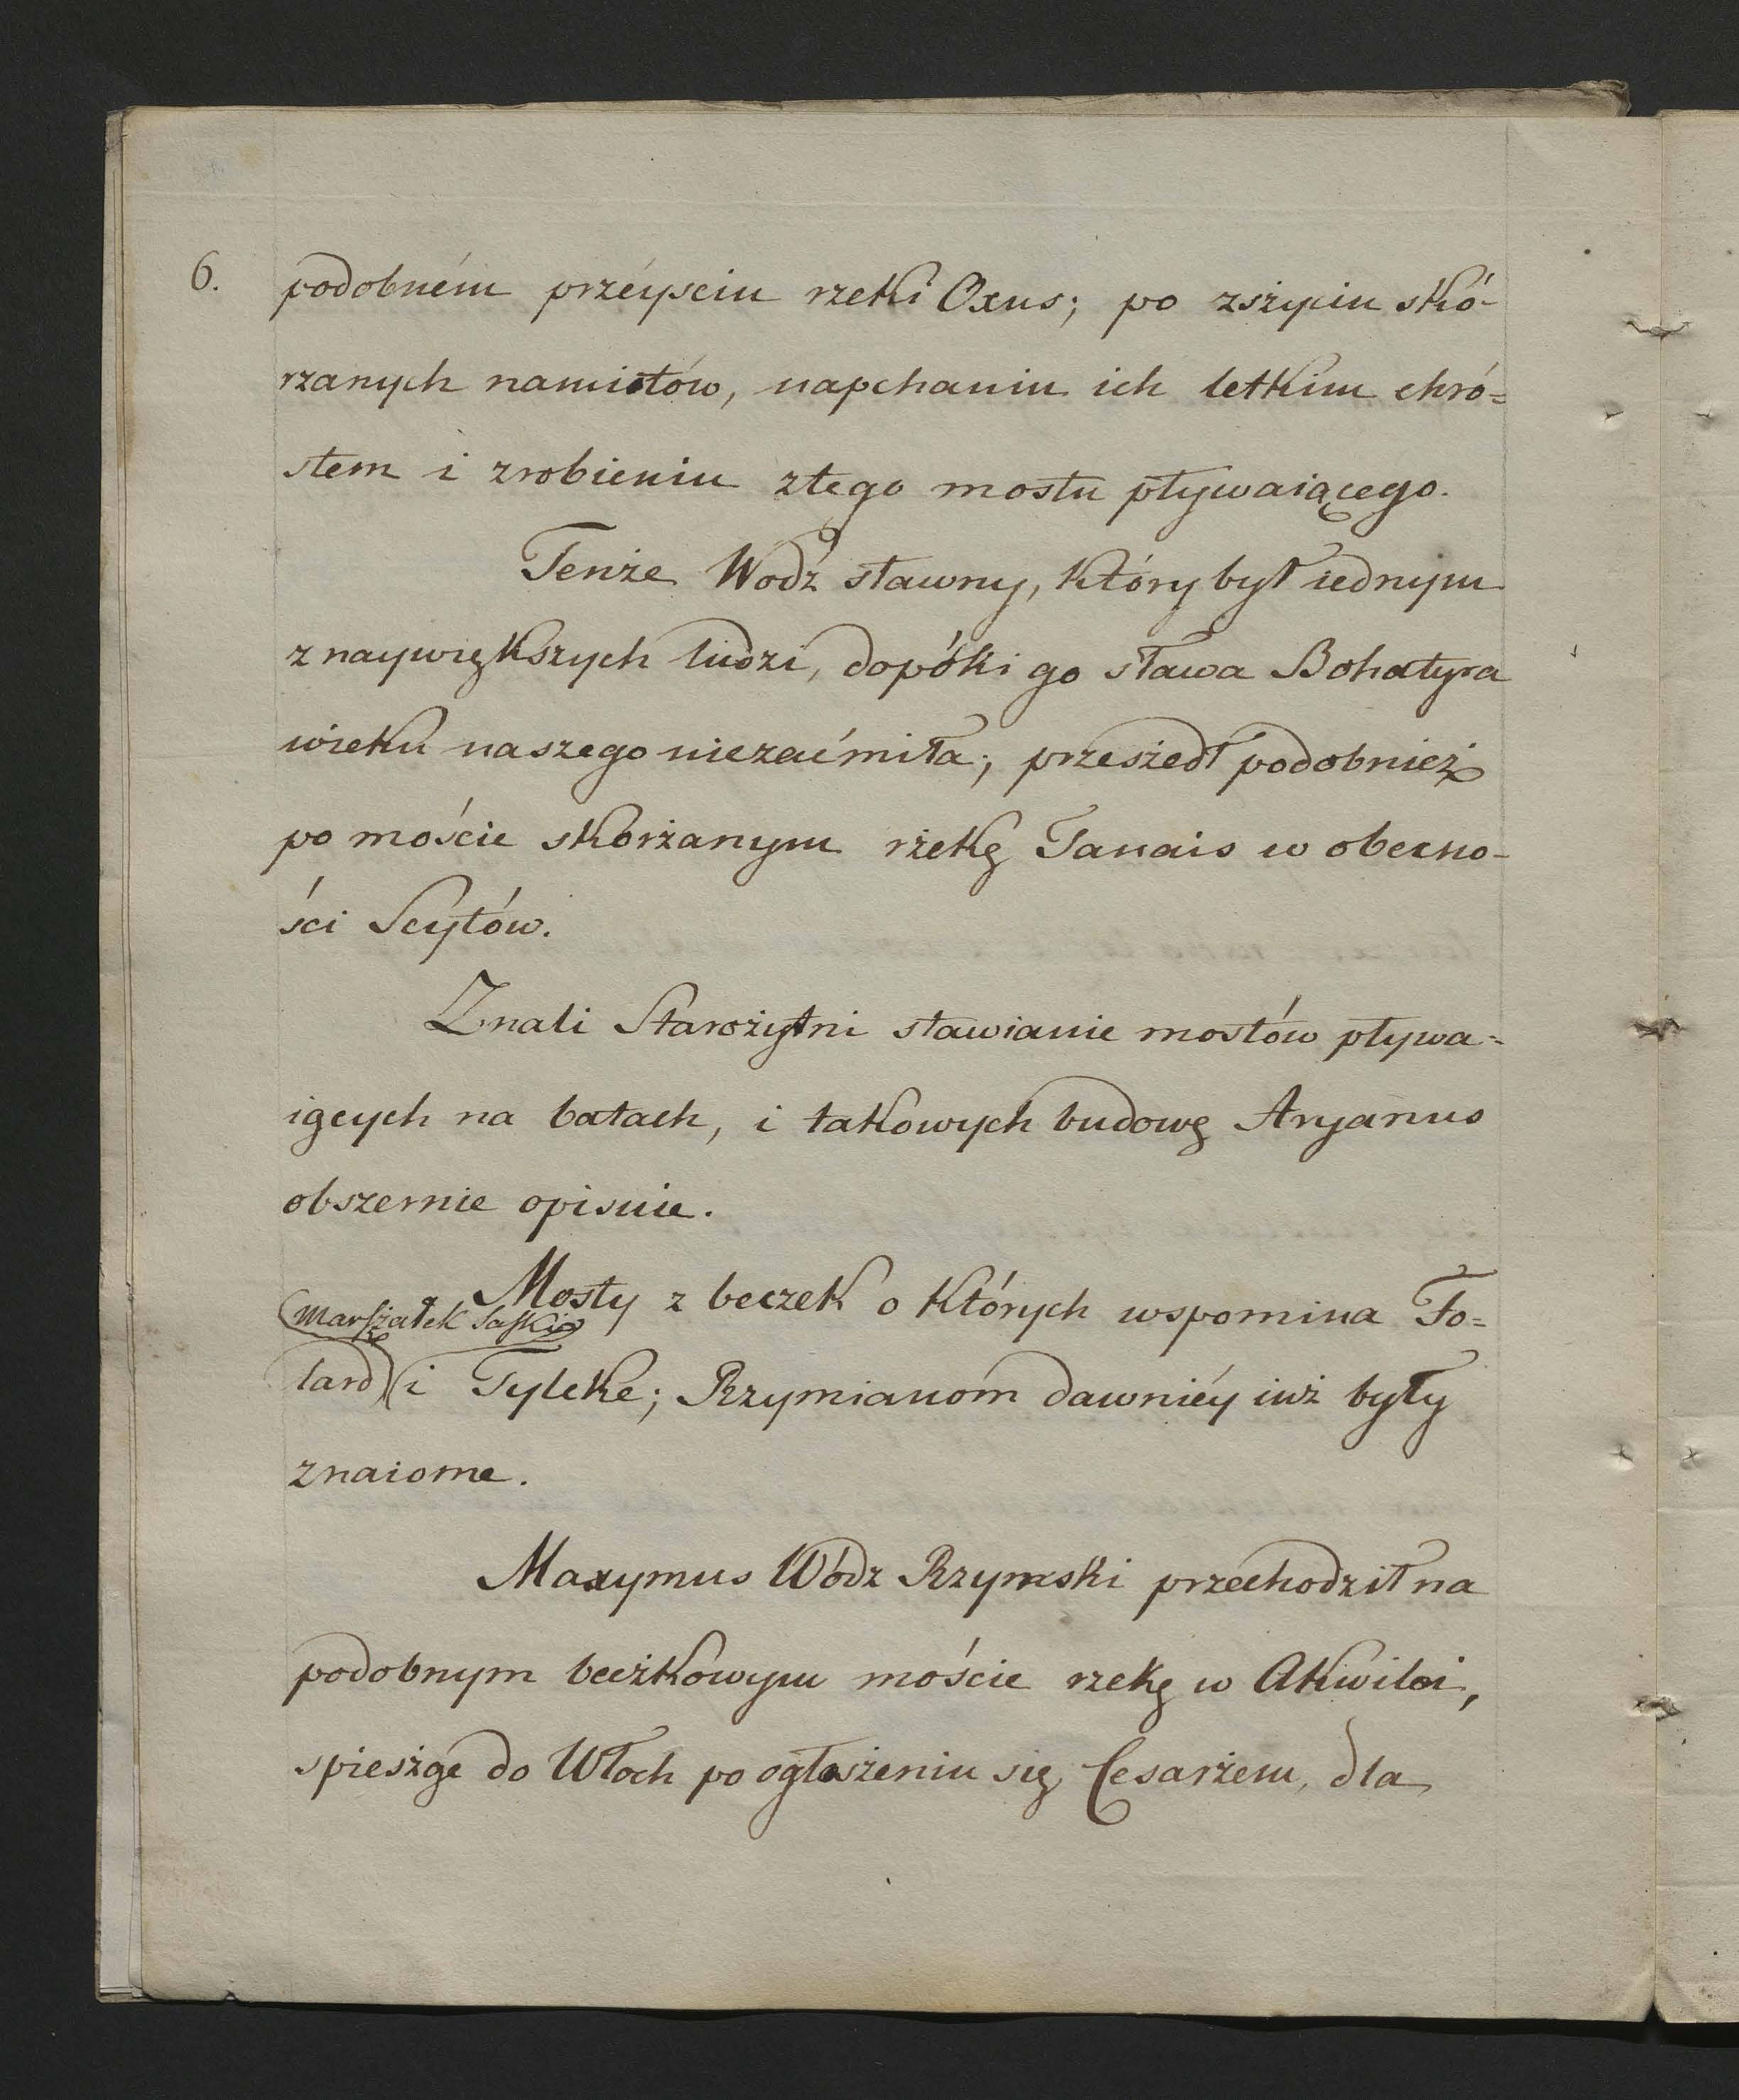 6. podobném przéyściu rzeki Oxus; po zszyciu skó-
rzanych namiotów, napchaniu ich letkim chró=
stem i zrobieniu ztego mostu pływaiącego.
Tenże Wodz sławny, który był iednym
z naywiększych ludzi, dopóki go sława Bohatyra
wieku naszego niezaćmiła; przeszedł podobnież
po moście skorzanym rzekę Tanais w obecno-
ści Scytów.
Znali Starożytni stawianie mostów pływa=
iących na batach, i takowych budowę Aryanus
obszernie opisuie.
Mosty z beczek o których wspomina Fo=
Marszałek Saski
lard i Tyleke; Rzymianóm dawniéy iuż były
znaiome.
Maxymus Wódz Rzymski przechodził na
podobnym beczkowym moście rzekę w Akwilei,
spiesząc do Włoch po ogłoszeniu się Cesarzem, dla